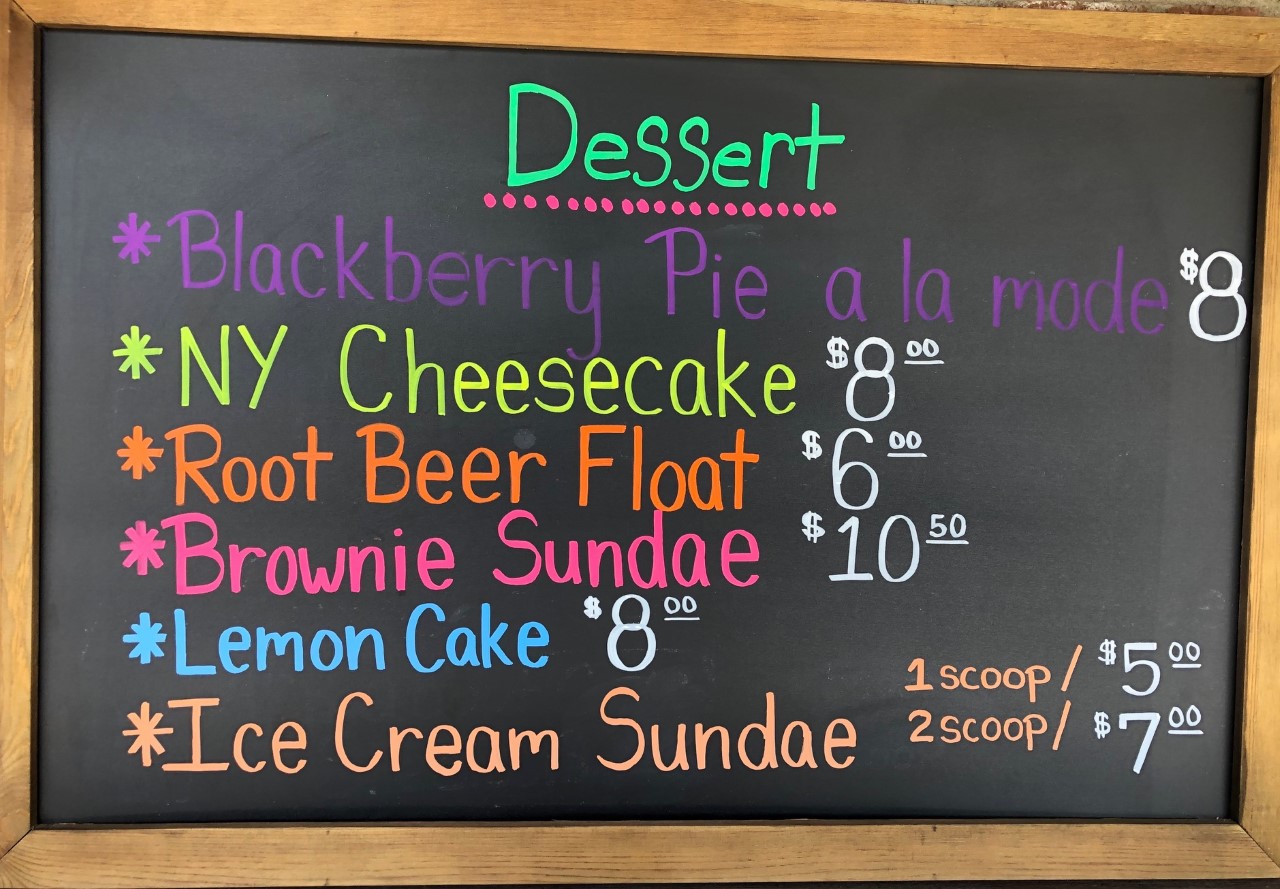 Dessert
*Blackberry Pie a la mode $8
*NY Cheesecake $8 00
*Root Beer Float $6 00
*Brownie Sundae $10 50
*Lemon Cake $8 00
1 scoop/ $5 00
*Ice Cream Sundae 2 scoop/ $7 00